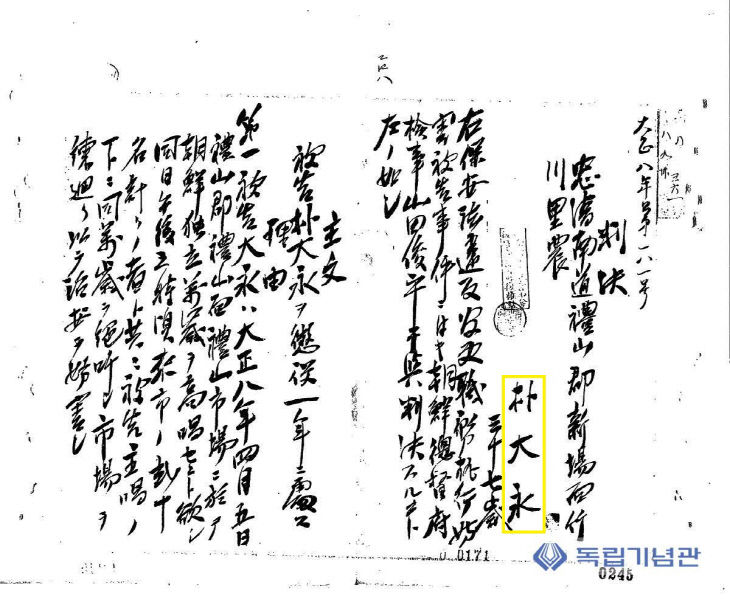 大正八年第一八一号
判決
忠淸南道禮山郡新場面竹
川里農
朴大永
三十七歲
右保安法違反
被告事件ニ付キ朝鮮總督府
檢事山田俊平干與判決スルコト
左ノ如シ
主文
被告朴大永ヲ懲役一年ニ處ス
理由
第一被告大永ハ大正八年四月五日
禮山郡禮山面禮山市場ニ於テ
朝鮮独立萬歲ヲ高唱セント欲シ
同日午後三時頃
名計リノ者ト共ニ被告主唱ノ
下ニ同萬歲ヲ絕叫シ市場ヲ
練廻リ以テ治安ヲ妨害シ
0171
독립기념관
0245